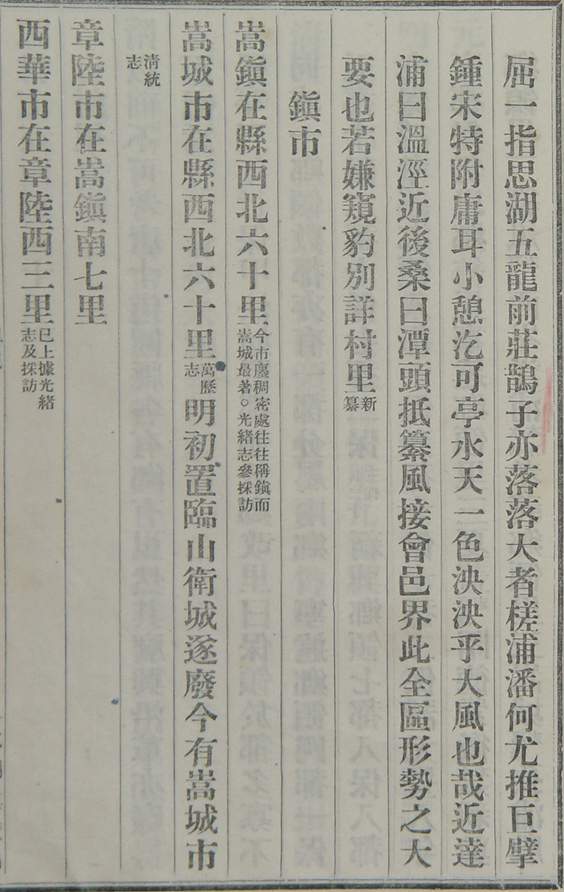 屈一指思湖五龍前莊鵲子亦落落大者槎浦潘何尤推巨擘
鍾宋特附庸耳小憩汔可亭水天一色泱泱乎大風也哉近達
浦曰溫涇近後桑曰潭頭抵纂風接會邑界此全區形勢之大
要也若嫌窺豹別詳村里新纂
鎭市
嵩鎭在縣西北六十里今市廛稠密處往往稱鎭而嵩城最著○光緒志參採訪
嵩城市在縣西北六十里萬歷志明初置臨山衛城遂廢今有嵩城市
淸統志
章陸市在嵩鎭南七里
西華市在章陸西三里已上據光緒志及採訪